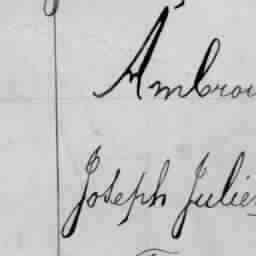 Ambroi
Joseph Julien